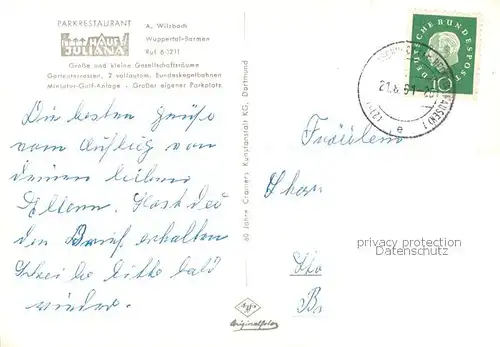 PARKRESTAURANT
HAUS JULIANA
A. Wilzbach
Wuppertal-Barmen
Ruf 6 1211
Große und kleine Gesellschaftsräume
Gartenterrassen, 2 vollautom. Bundeskegelbahnen
Miniatur-Golf-Anlage · Großer eigener Parkplatz
Die besten Grüße
vom Ausflug von
deinen lieben
Eltern. Hast du
den Brief erhalten
Schreibe bitte bald
wieder.
60 Jahre Cramers Kunstanstalt KG, Dortmund
Originalfoto
DEUTSCHE BUNDESPOST
10
e
Fräulein
privacy protection
Datenschutz